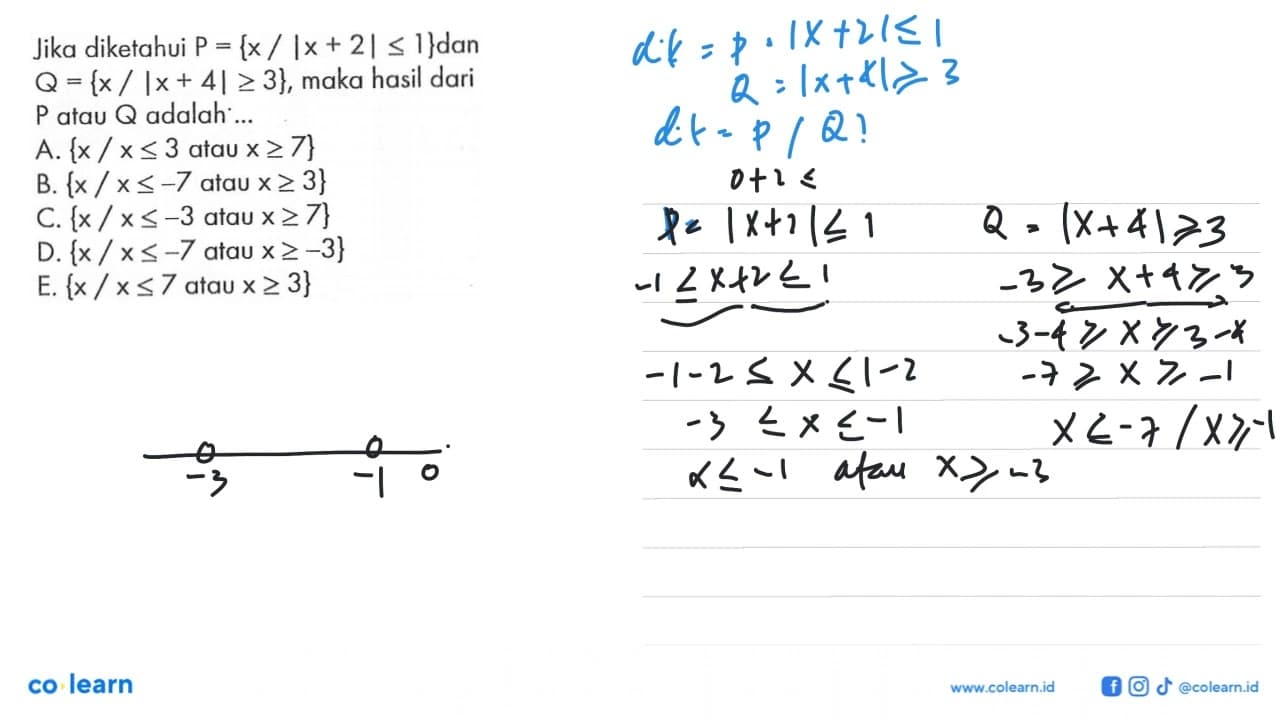 Jika diketahui P = {x / |x + 2| ≤ 1}dan
Q = {x / |x + 4| ≥ 3}, maka hasil dari
P atau Q adalah ...
A. {x / x ≤ 3 atau x ≥ 7}
B. {x / x ≤ –7 atau x ≥ 3}
C. {x / x ≤ –3 atau x ≥ 7}
D. {x / x ≤ –7 atau x ≥ –3}
E. {x / x ≤ 7 atau x ≥ 3}
-3 -1 0
dik = P . |x+2| ≤ 1
Q = |x+4| ≥ 3
dit = P / Q?
0+2 ≤
P= |x+2| ≤ 1
-1 ≤ x+2 ≤ 1
-1-2 ≤ x ≤ 1-2
-3 ≤ x ≤ -1
x ≤ -1 atau x ≥ -3
Q = |x+4| ≥ 3
-3 ≥ x+4 ≥ 3
-3-4 ≥ x ≥ 3-4
-7 ≥ x ≥ -1
x ≤ -7 / x ≥ -1
co learn
www.colearn.id
@colearn.id